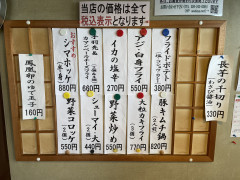 当店の価格は全て
税込表示となります
長芋の千切り
(わさび醤油)
330円
フライドポテト
380円
豚キムチ鍋
820円
アジの身フライ
550円
大粒カキフライ
770円
イカの塩辛
270円
野菜炒め
550円
660円
シューマイ
440円
おすすめ
シマホッケ
880円
野菜コロッケ
550円
鳳凰卵のゆで玉子
160円